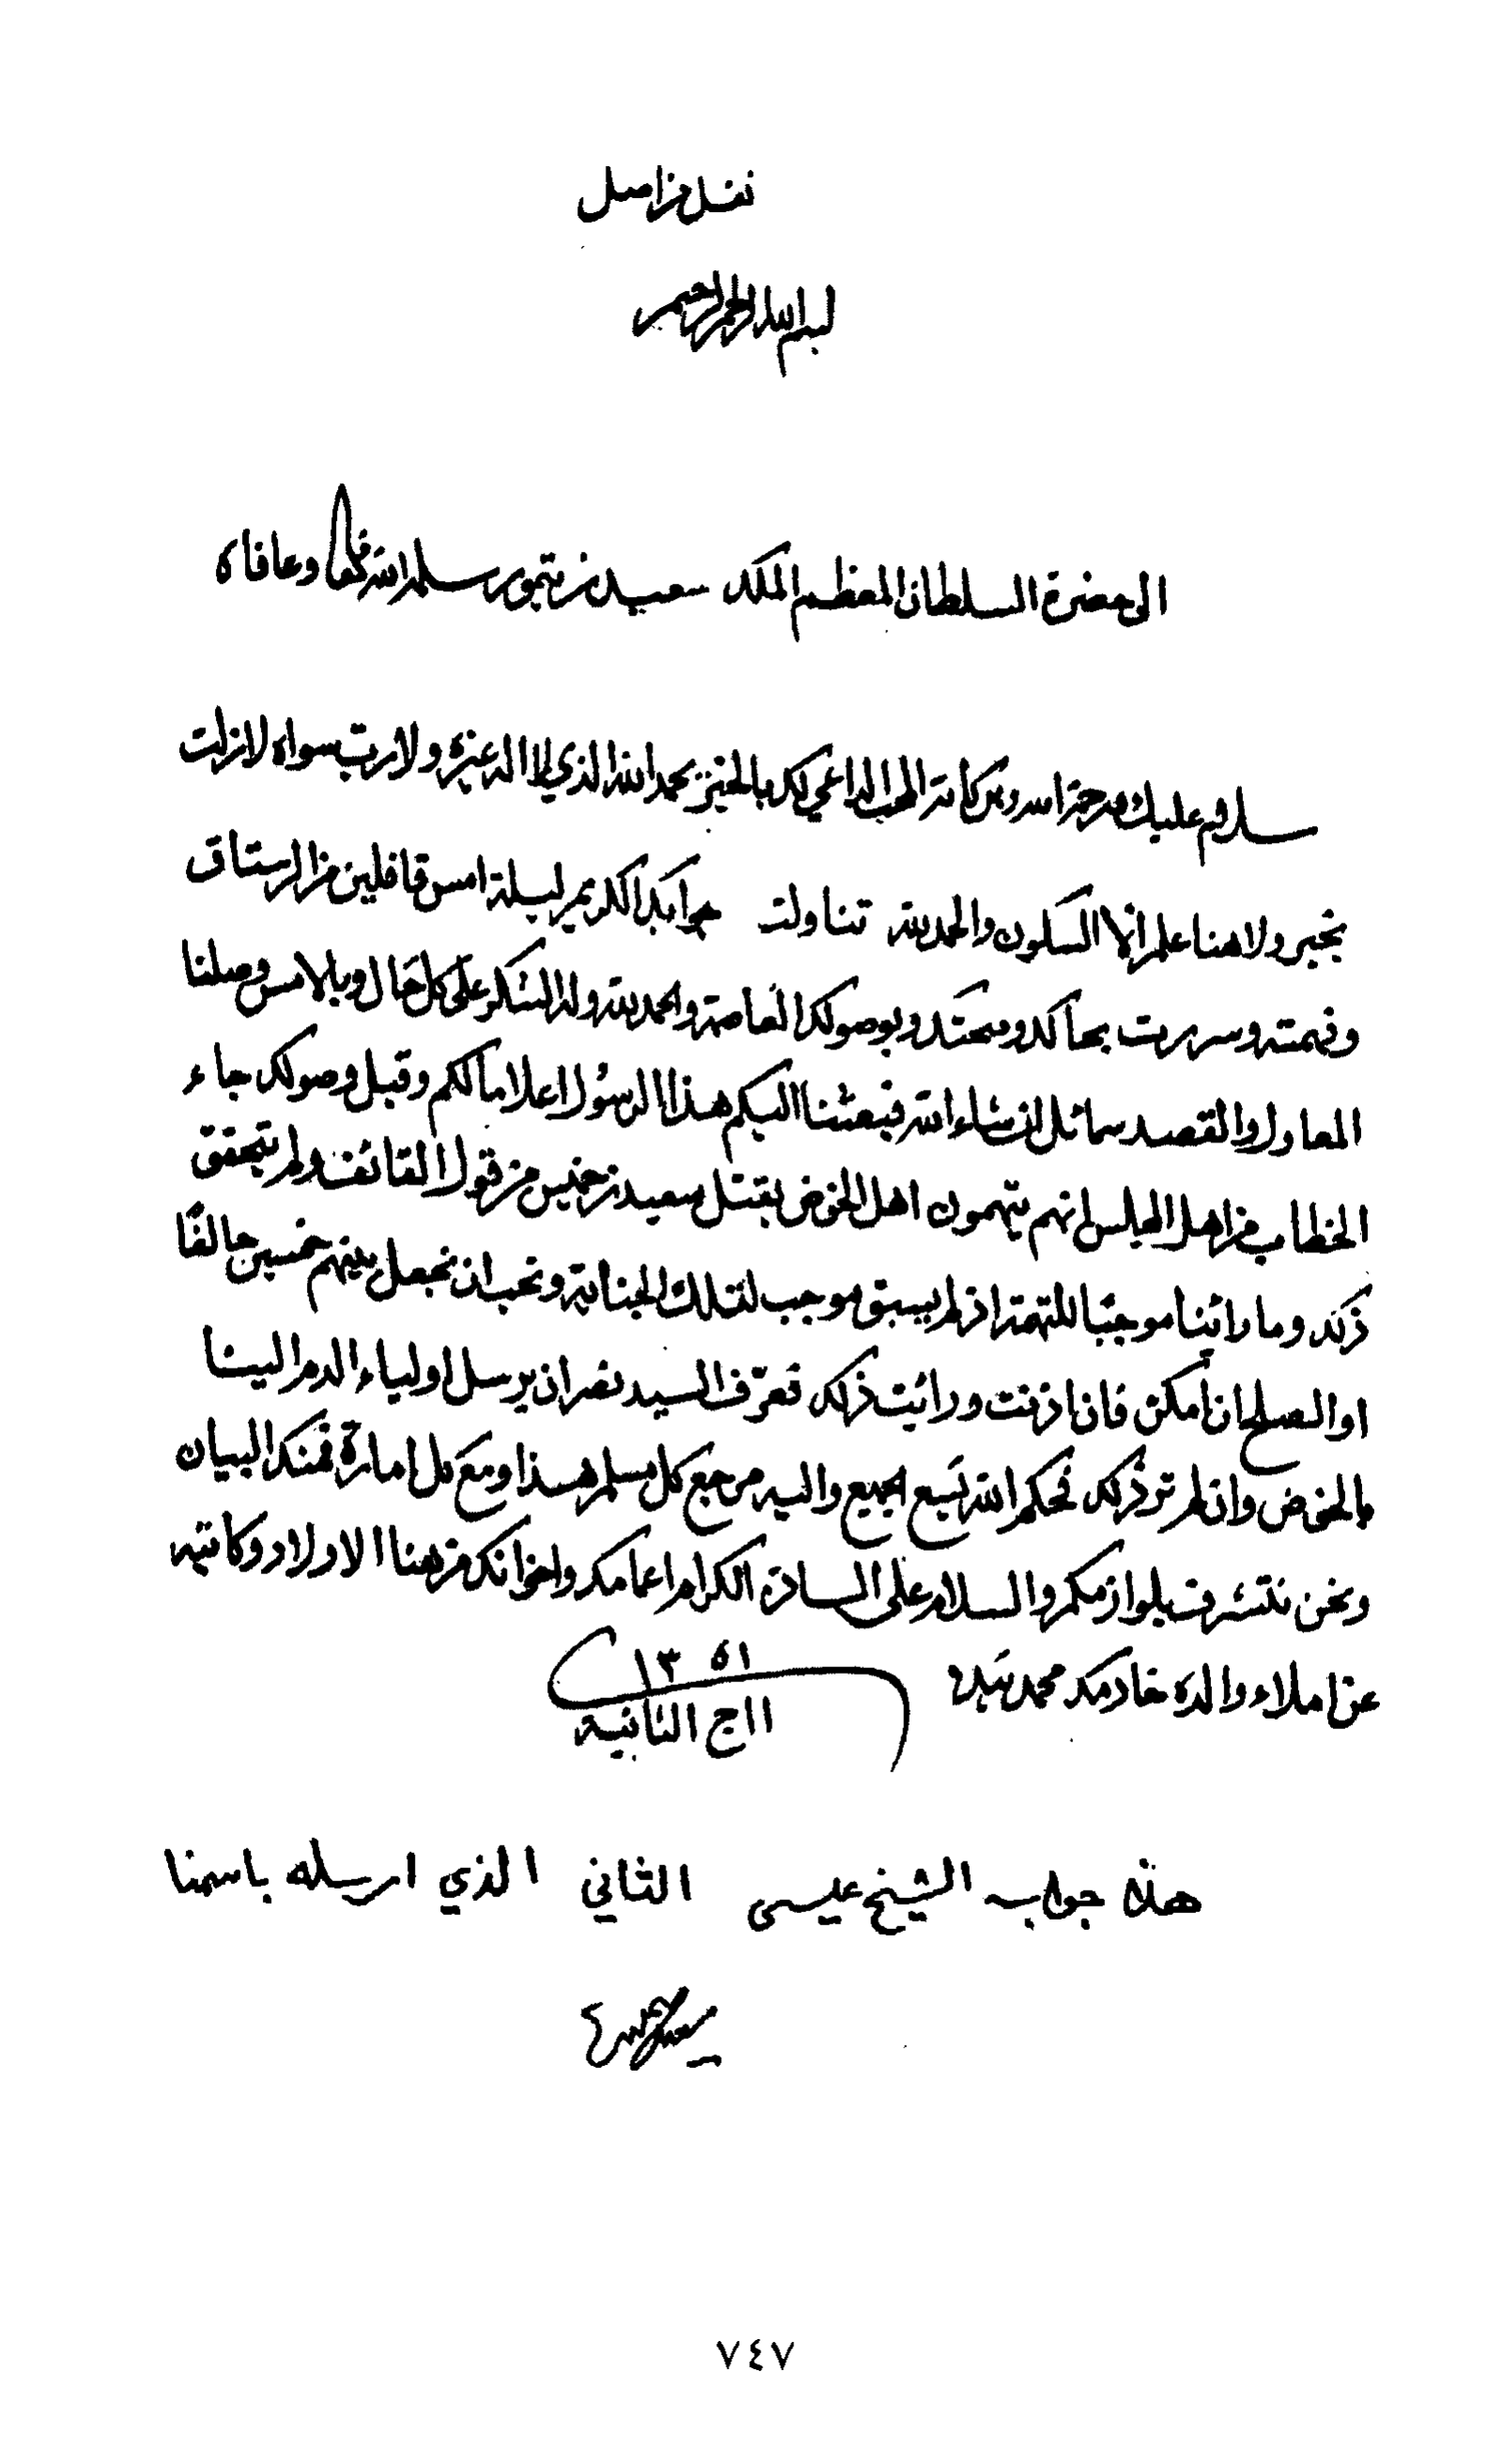 نقل من اصل
بسم الله الرحمن الرحيم
الى حضرة السلطان المعظم الملك سعيد بن تيمور سلمه الله تعالى وعافاه
سلام عليك ورحمة الله وبركاته المحب الداعي لك بالخير بحمد الله الذي لا اله غيره ولا رب سواه لا زلت
بخير ولا هنا علم الا السكون والحمد لله تناولت جوابك الكريم ليلة امس قافلين من الرستاق
وفهمته وسررت بحالك وصحتك وبوصولك العاصمة والحمد لله وله الشكر على كل حال وبالامس وصلنا
المعاول والقصد سمائل ان شاء الله فبعثنا اليكم هذا الرسول اعلاما لكم وقبل وصولك جاء
الخطاب من اهل المجلس انهم يتهمون اهل الخوض بقتل سعيد بن خميس من قول القائف ولم يتحقق
ذلك وما رائينا موجبًا للتهمة اذ لم يسبق موجب لتلك الجناية ونحب ان نجعل بينهم خمسين حالفًا
او الصلح ان امكن فان اذنت ورائيت ذلك فعرّف السيد نصر ان يرسل اولياء الدم الينا
بالخوض وان لم تر ذلك فحكم الله يَسَع الجميع واليه مرجع كل مسلم هذا ومع كل امارة فمنك البيان
ونحن نتشرف بلوازمكم والسلام على السادة الكرام اعمامك واخوانك من هنا الاولاد وكاتبه
عن املاء والده خادمك محمد بيده
١٣٥١
١١ ج الثانية
هذا جواب الشيخ عيسى الثاني الذي ارسله باسمنا
٧٤٧